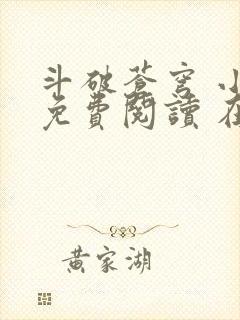 斗破苍穹 小
免費閱讀 在
黃家湖